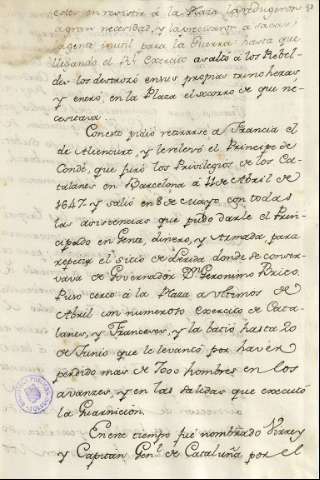 en resistir á la Plaza la reduxeron
á gran necesidad, y la precisaron á sacar
la gente inutil para la Guerra hasta que
llegando el Rl. Exercito asaltó á los Rebel-
des los destrozó en sus propias trincheras
y entró en la Plaza el socorro de que ne-
cesitava.
Con esto pidió retirarse a Francia el
de Aliencurt, y le relevó el Principe de
Condé, que juró los Privilegios de los Ca-
talanes en Barcelona á 11 de Abril de
1647 y salió en 8 de Mayo con todas
las asistencias que pudo darle el Prin-
cipado en Gente, dinero, y Armada para
repetir el sitio de Lérida donde se conser-
vava de Governador Dn. Geronimo Brico.
Puso cerco á la Plaza a ultimos de
Abril con numeroso exercito de Cata-
lanes, y Franceses, y la batió hasta 20
de Junio que le levantó por haver
perdido mas de 7000 hombres en los
avanzes, y en las salidas que executó
la Guarnicion.
En ese tiempo fué nombrado Virrey
y Capitán Genl. de Cataluña por el